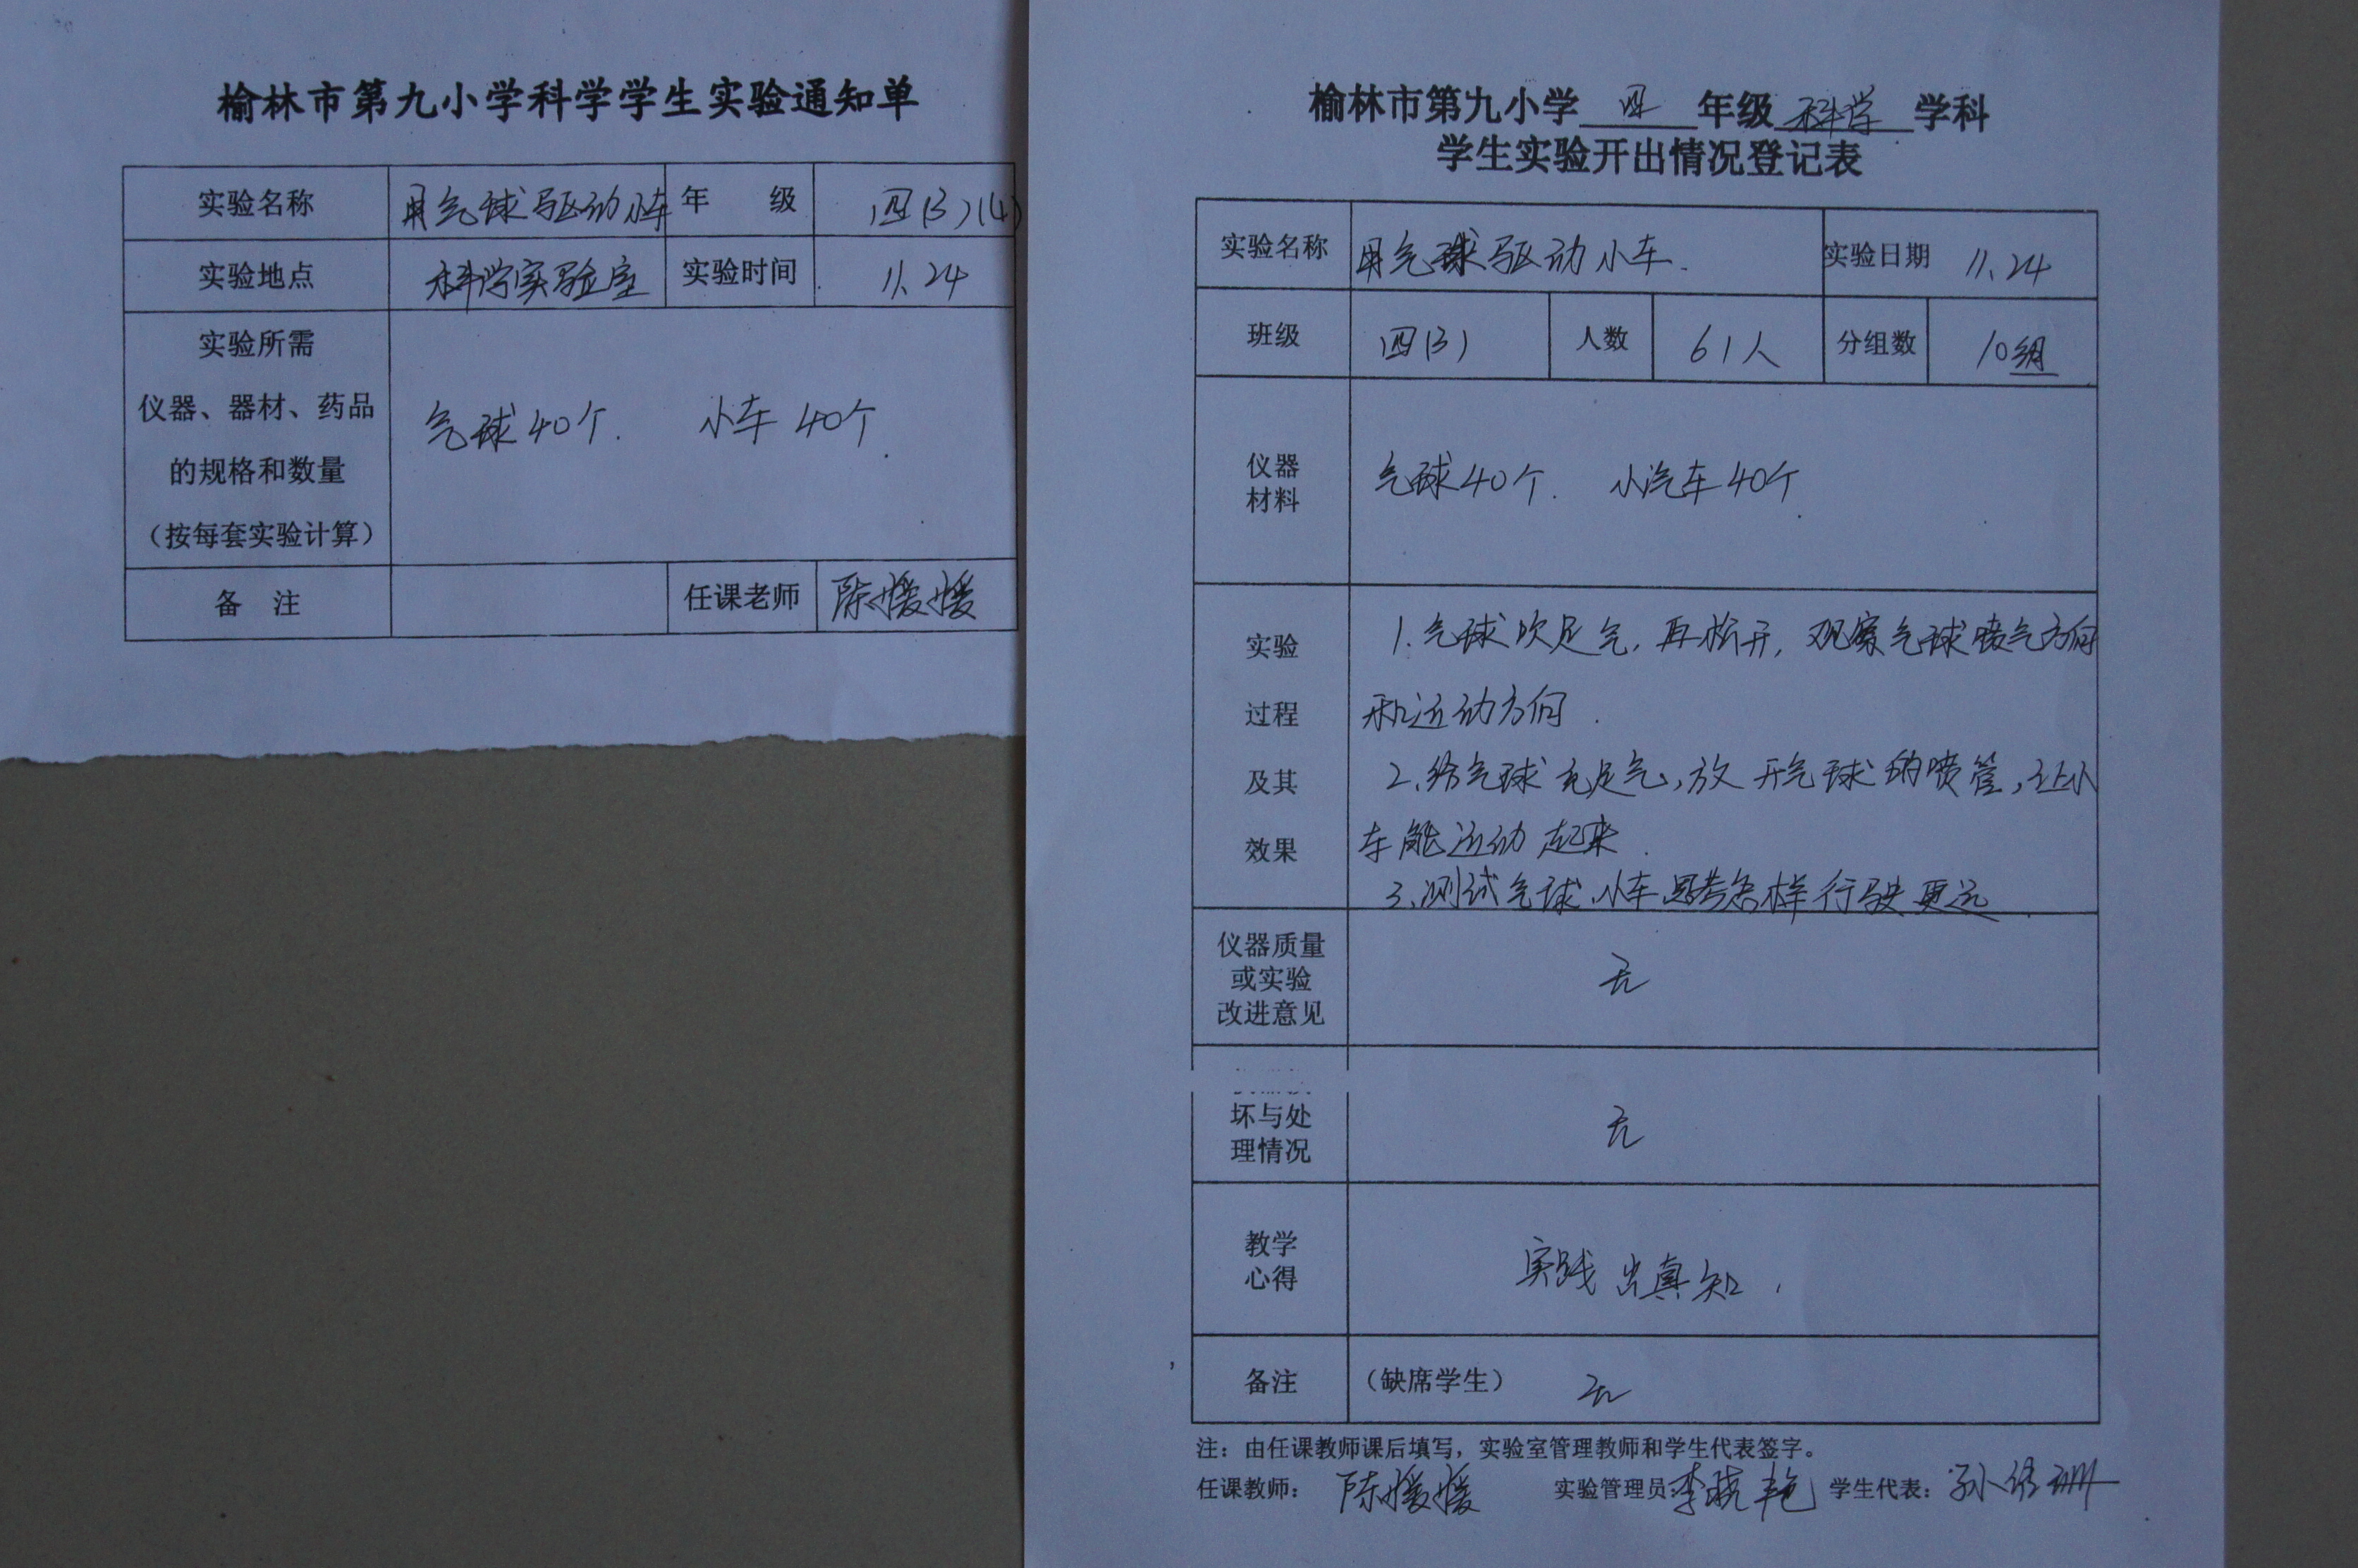 榆林市第九小学科学学生实验通知单
实验名称 用气球驱动小车 年 级 四(3)(4)
实验地点 科学实验室 实验时间 11.24
实验所需
仪器、器材、药品
的规格和数量
（按每套实验计算）
气球40个. 小车 40个
备 注 任课老师 陈媛媛
榆林市第九小学 四 年级 科学 学科
学生实验开出情况登记表
实验名称 用气球驱动小车. 实验日期 11.24
班级 四(3) 人数 61人 分组数 10组
仪器
材料
气球40个. 小汽车40个
实验
过程
及其
效果
1.气球吹足气,再松开,观察气球喷气方向
和运动方向.
2.给气球充足气,放开气球的喷管,让小
车能运动起来.
3、测试气球小车思考怎样行驶更远
仪器质量
或实验
改进意见
无
坏与处
理情况
无
教学
心得
实践出真知.
备注 （缺席学生） 无
注：由任课教师课后填写，实验室管理教师和学生代表签字。
任课教师： 陈媛媛 实验管理员： 李晓艳 学生代表： 孙